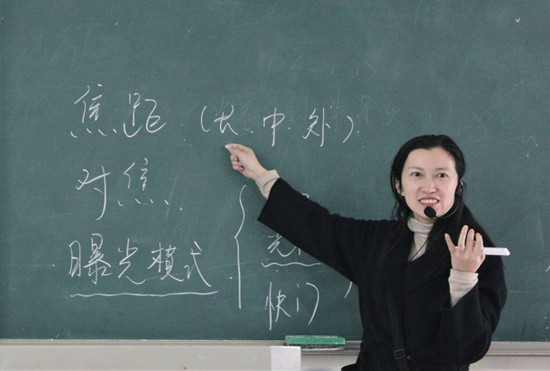 焦距 (长.中.外)
对焦
曝光模式
快门